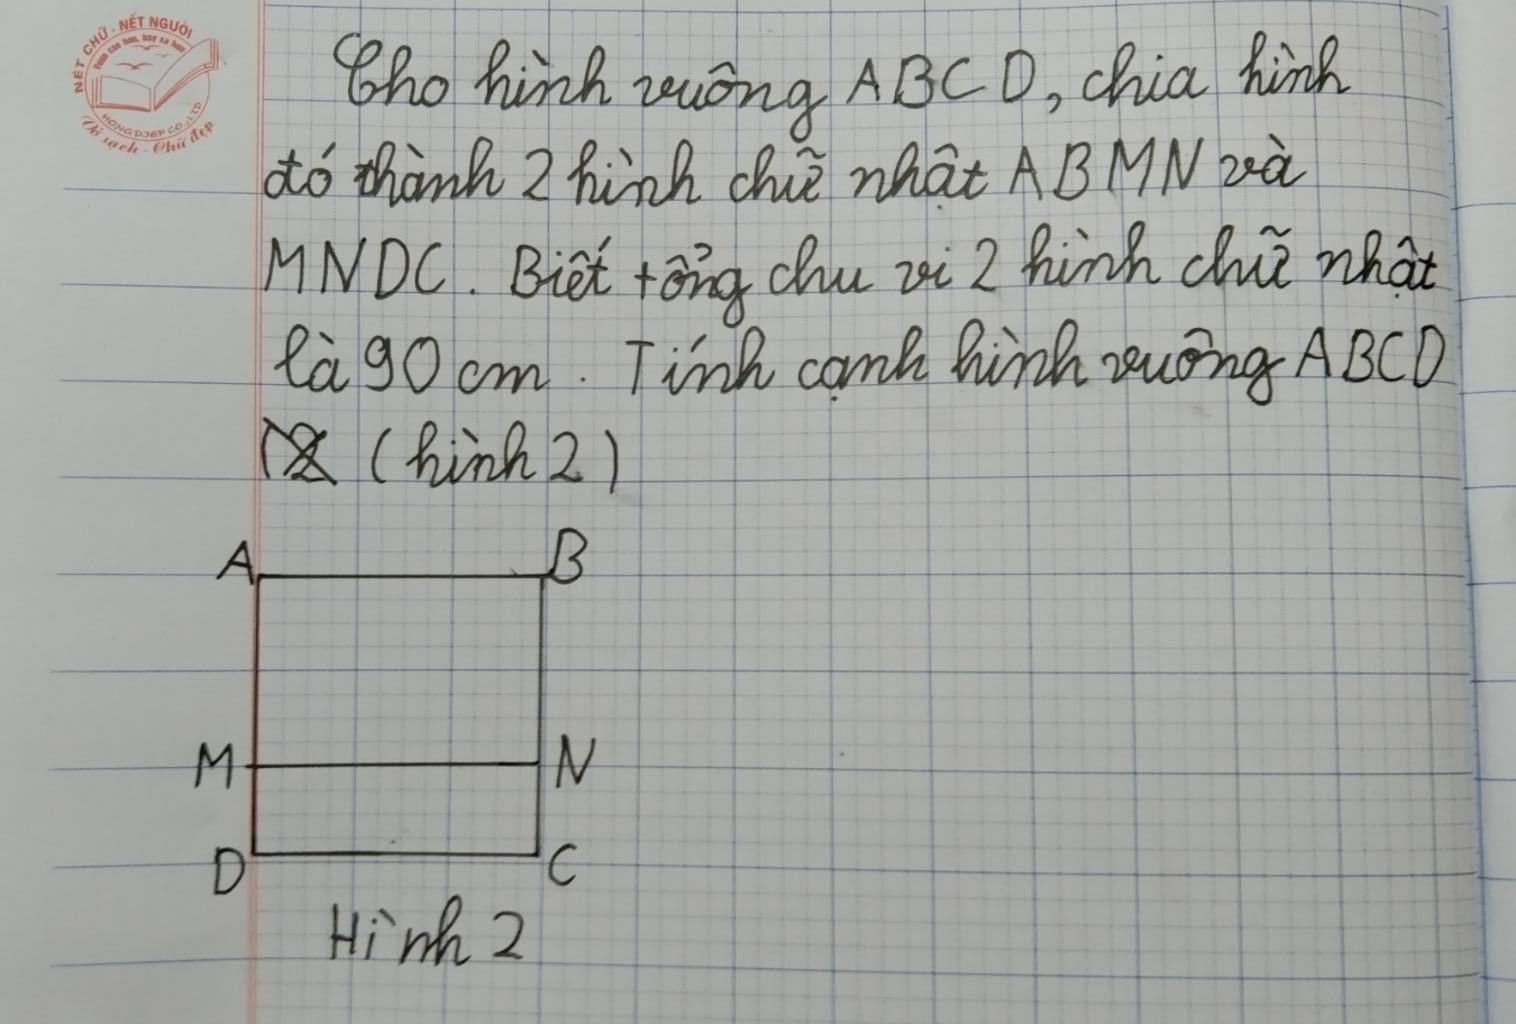 NÉT CHỮ - NẾT NGƯỜI
HONG DIEP CO.,LTD
Vở sạch - Chữ đẹp
Cho hình vuông ABCD, chia hình
đó thành 2 hình chữ nhật ABMN và
MNDC. Biết tổng chu vi 2 hình chữ nhật
là 90 cm. Tính cạnh hình vuông ABCD
(hình 2)
A B
M N
D C
Hình 2